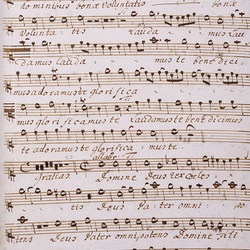 ho minibus bonæ voluntatis bonæ
voluntatis laudamus
damus lauda mus te benedici
mus adoramus te glorifica
mus glorificamus te laudamus te benedicimus
te adoramus te glorifica mus te
Domine Deus rex coeles
tis Deus Pater omni po
tens Deus Pater omnipotens Domine fili